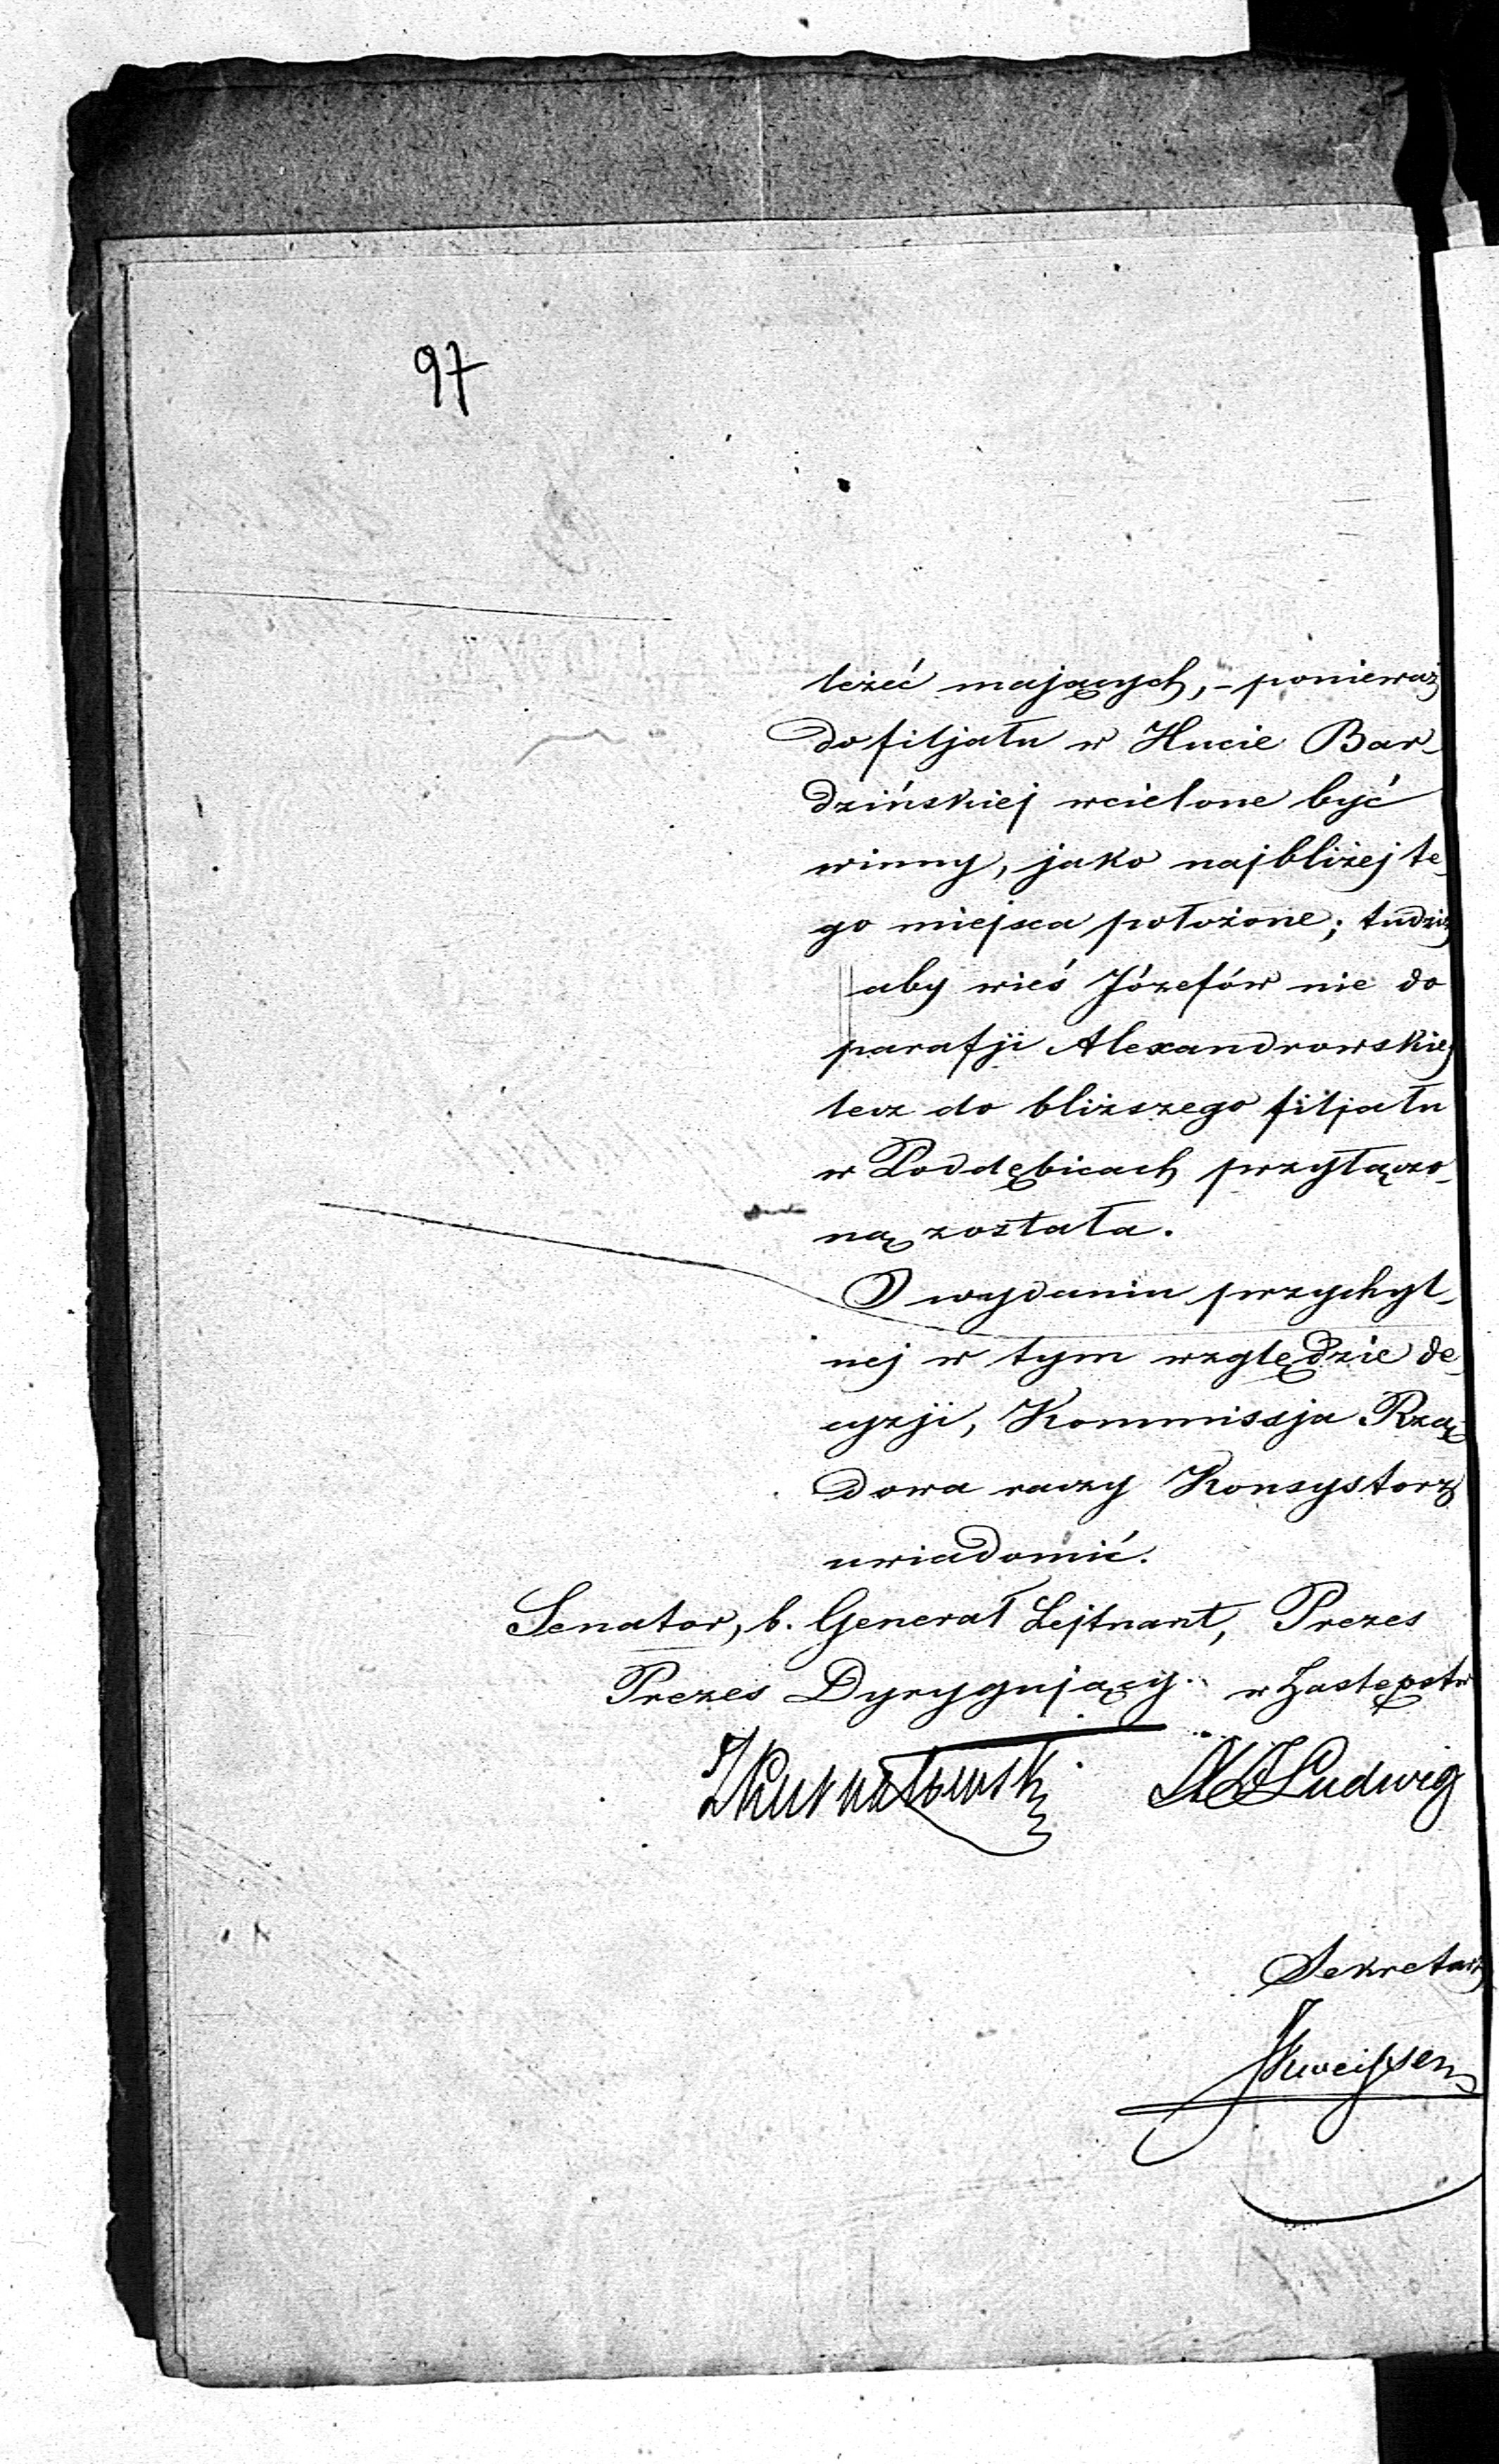 97
leżeć mających, - ponieważ
do filjału w Hucie Bar-
dzińskiej wcielone być
winny, jako najbliżej te-
go miejsca położone; tudzież
aby wieś Józefów nie do
parafji Alexandrowskiej
lecz do bliższego filjału
w Poddębicach przyłączo-
ną została.
O wydaniu przychyl-
nej w tym względzie de-
cyzji, Kommissja Rzą-
dowa raczy Konsystorz
uwiadomić.
Senator, b. Generał Lejtnant, Prezes
Prezes Dyrygujący w Zastępstw
Ludwig
Sekretarz